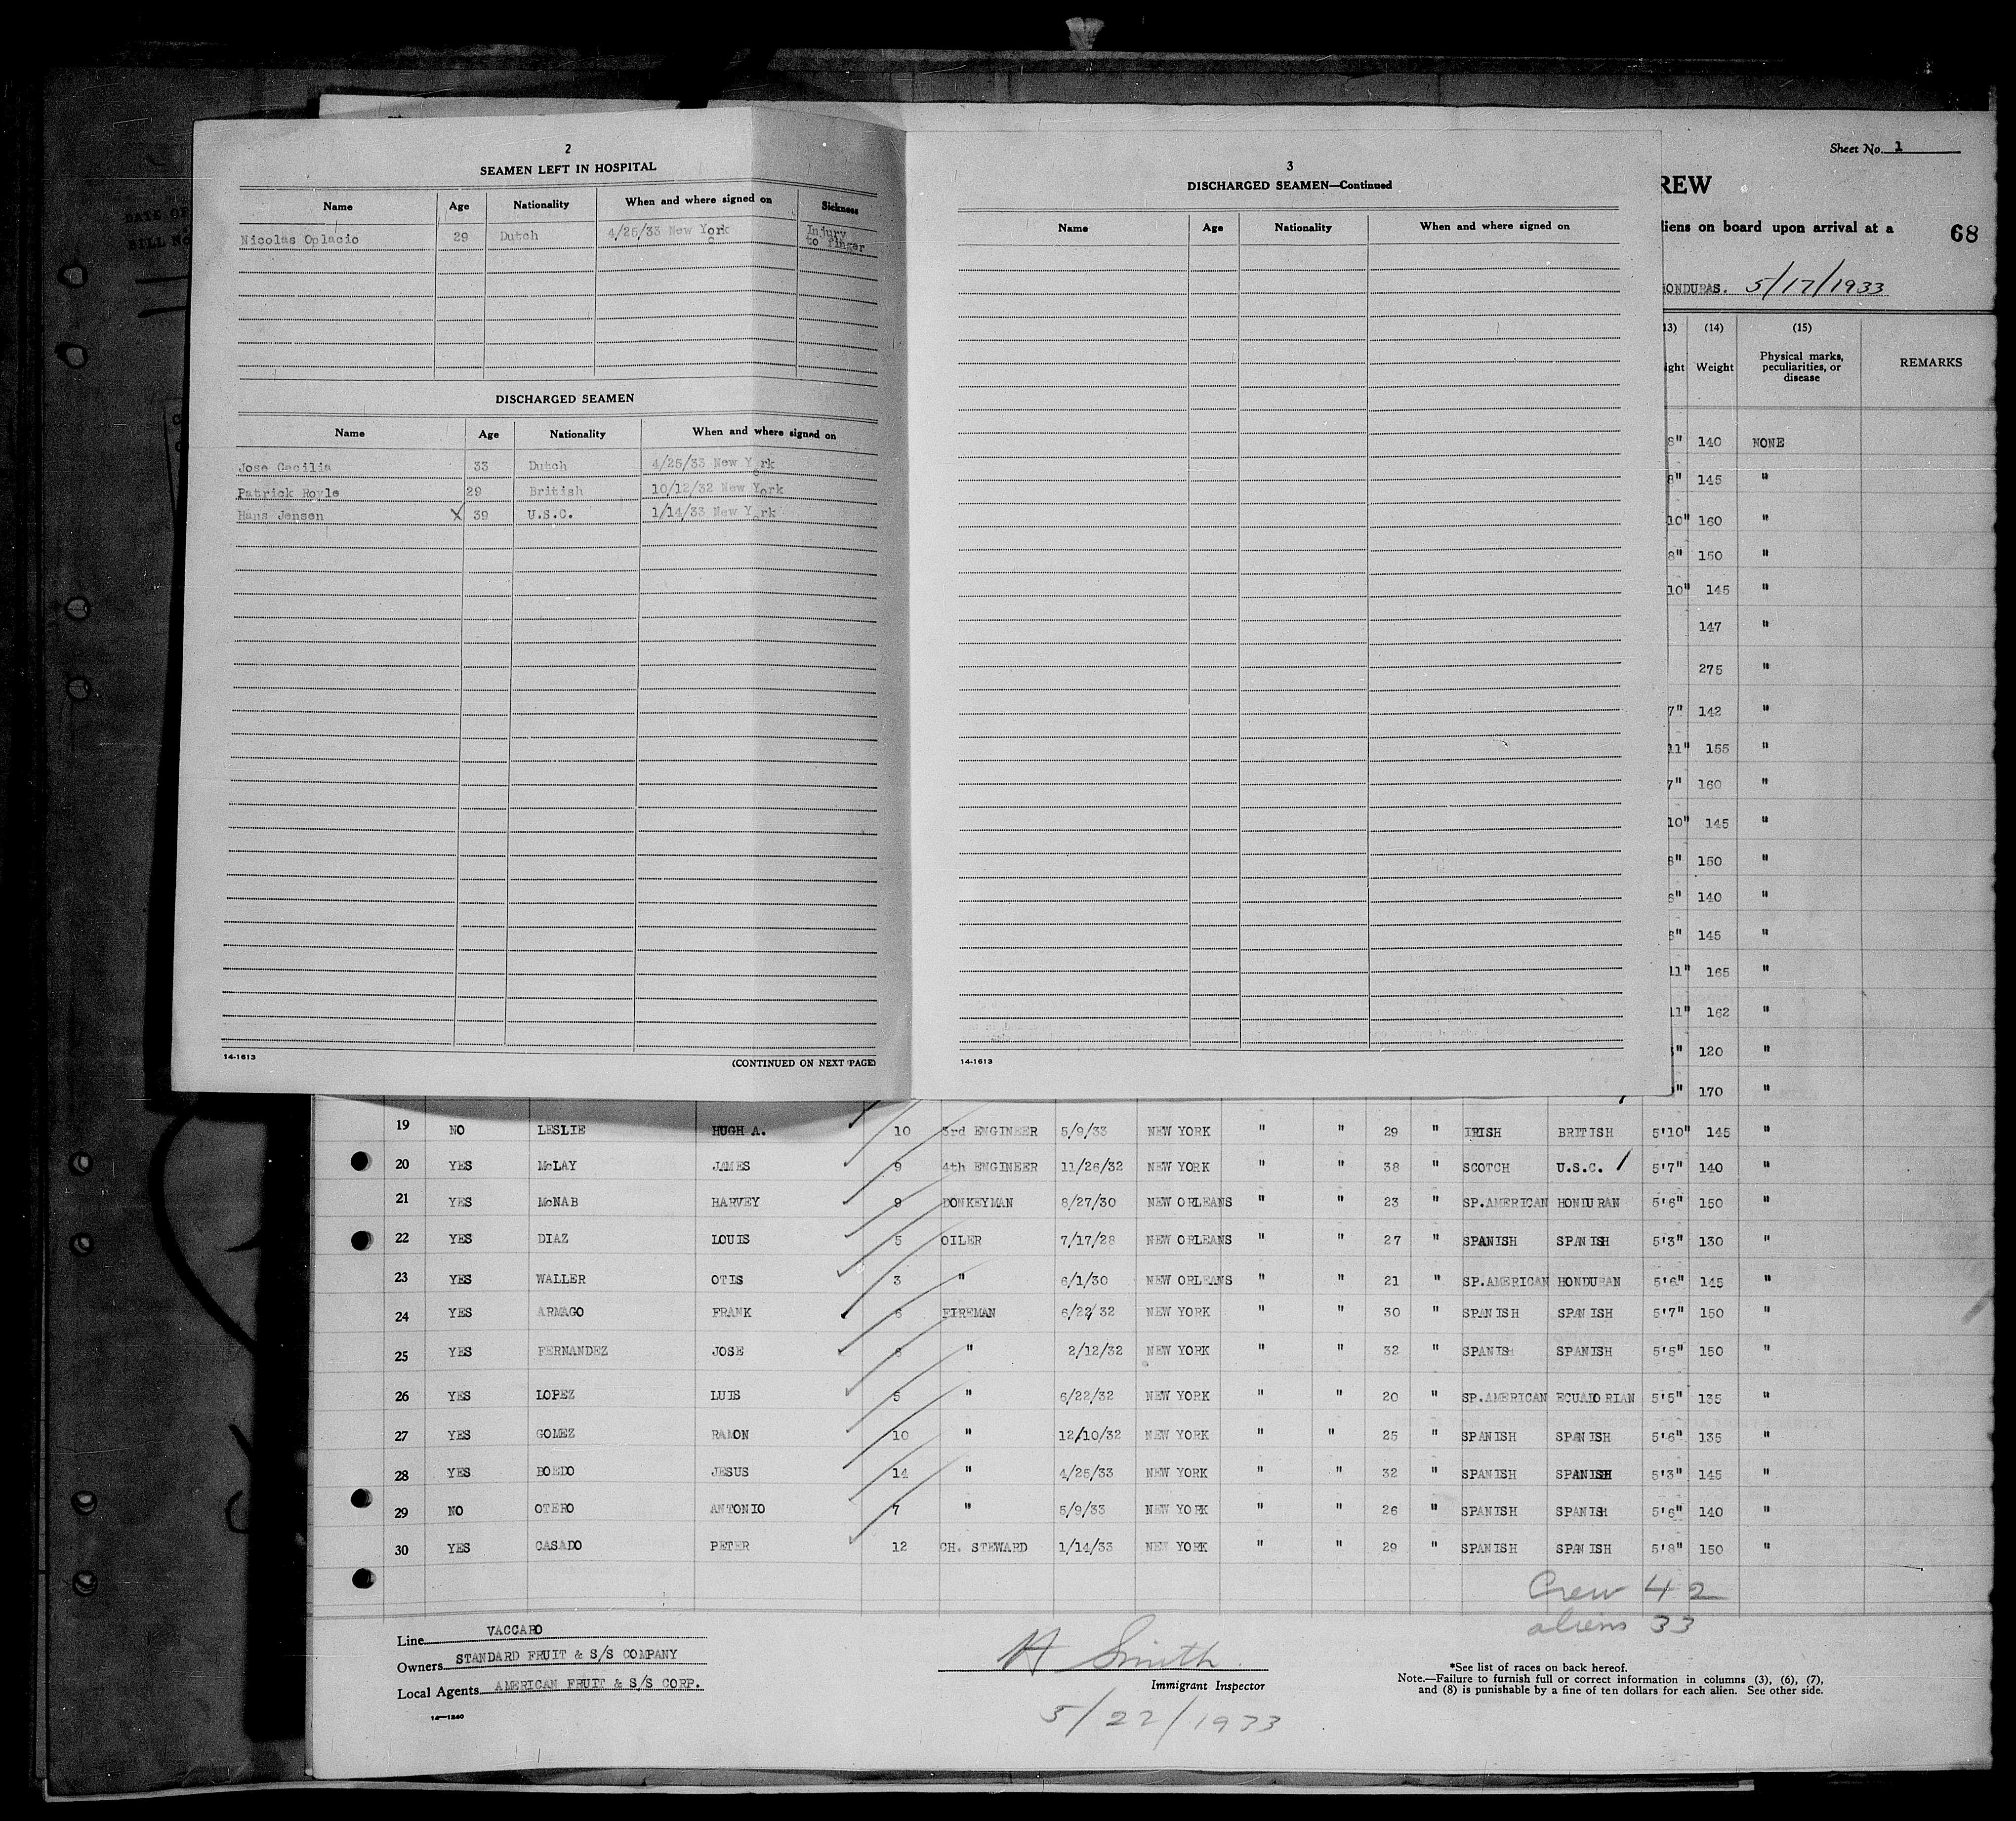 2
SEAMEN LEFT IN HOSPITAL
Name Age Nationality When and where signed on Sickness
Nicolas Oplacio 29 Dutch 4/25/33 New York Injury
to finger
DISCHARGED SEAMEN
Name Age Nationality When and where signed on
Jose Cecilia 33 Dutch 4/25/33 New York
Patrick Royle 29 British 10/12/32 New York
Hans Jensen X 39 U.S.C. 1/14/33 New York
14-1613 (CONTINUED ON NEXT PAGE)
3
DISCHARGED SEAMEN—Continued
Name Age Nationality When and where signed on
14-1613
Sheet No. 1
REW
liens on board upon arrival at a 68
HONDURAS. 5/17/1933
13) (14) (15)
ght Weight Physical marks, peculiarities, or disease REMARKS
8" 140 NONE
8" 145 "
10" 160 "
8" 150 "
10" 145 "
147 "
275 "
7" 142 "
11" 155 "
7" 160 "
10" 145 "
8" 150 "
6" 140 "
6" 145 "
11" 165 "
11" 162 "
" 120 "
" 170 "
19 NO LESLIE HUGH A. 10 3rd ENGINEER 5/9/33 NEW YORK " " 29 " IRISH BRITISH 5'10" 145 "
20 YES McLAY JAMES 9 4th ENGINEER 11/26/32 NEW YORK " " 38 " SCOTCH U.S.C. / 5'7" 140 "
21 YES McNAB HARVEY 9 DONKEYMAN 8/27/30 NEW ORLEANS " " 23 " SP.AMERICAN HONDURAN 5'6" 150 "
22 YES DIAZ LOUIS 5 OILER 7/17/28 NEW ORLEANS " " 27 " SPANISH SPANISH 5'3" 130 "
23 YES WALLER OTIS 3 " 6/1/30 NEW ORLEANS " " 21 " SP.AMERICAN HONDURAN 5'6" 145 "
24 YES ARMAGO FRANK 6 FIREMAN 6/22/32 NEW YORK " " 30 " SPANISH SPANISH 5'7" 150 "
25 YES FERNANDEZ JOSE 8 " 2/12/32 NEW YORK " " 32 " SPANISH SPANISH 5'5" 150 "
26 YES LOPEZ LUIS 5 " 6/22/32 NEW YORK " " 20 " SP.AMERICAN ECUADORIAN 5'5" 135 "
27 YES GOMEZ RAMON 10 " 12/10/32 NEW YORK " " 25 " SPANISH SPANISH 5'6" 135 "
28 YES BOEDO JESUS 14 " 4/25/33 NEW YORK " " 32 " SPANISH SPANISH 5'3" 145 "
29 NO OTERO ANTONIO 7 " 5/9/33 NEW YORK " " 26 " SPANISH SPANISH 5'6" 140 "
30 YES CASADO PETER 12 CH. STEWARD 1/14/33 NEW YORK " " 29 " SPANISH SPANISH 5'8" 150 "
Crew 42
aliens 33
Line VACCARO
Owners STANDARD FRUIT & S/S COMPANY
Local Agents AMERICAN FRUIT & S/S CORP.
14—1240
H Smith
Immigrant Inspector
5/22/1933
*See list of races on back hereof.
Note.—Failure to furnish full or correct information in columns (3), (6), (7),
and (8) is punishable by a fine of ten dollars for each alien. See other side.
DATE OF
BILL No